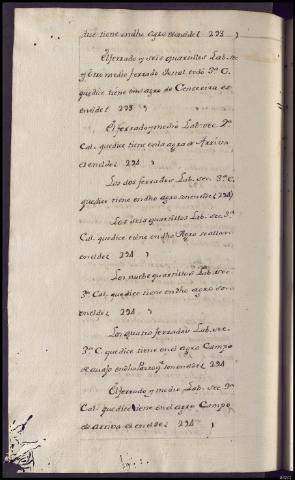 que tiene en dho agro es en el de ( 293 )
El ferrado y seis quartillos Lab. sec.
y otro medio ferrado todo 3ª C.
que dice tiene en la agra de Cenceeira es
en el de ( 293 )
El ferrado y medio Lab. sec. 2ª
Cal. que dice tiene en la agra de Arriva
es en el de ( 294 )
Los dos ferrados Lab. sec. 3ª C.
que dice tiene en dho agro son en el de ( 294 )
Los seis quartillos Lab. sec. 2ª
Cal. que dice tiene en dho Agro se allan
en el de ( 294 )
Los nuebe quartillos Lab. sec.
3ª Cal. que dice tiene en dho agro son
en el de ( 294 )
Los quatro ferrados Lab. sec.
3ª C. que dice tiene en el agro Campo
de auajo en dho son en el de ( 294 )
El ferrado y medio Lab. sec. 2ª
Cal. que dice tiene en el agro Campo
de arriva es en el de ( 294 )